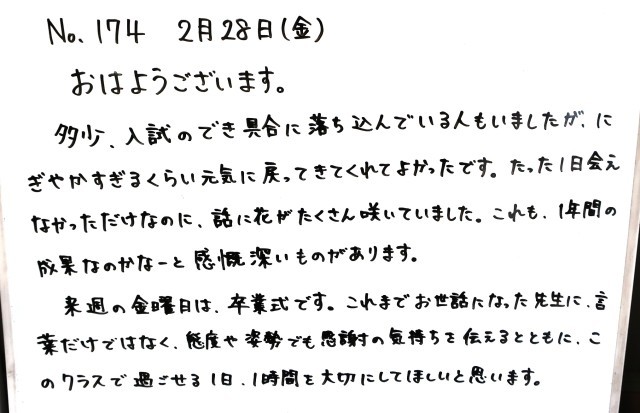 No.174 2月28日(金)
おはようございます。
多少、入試のでき具合に落ち込んでいる人もいましたが、に
ぎやかすぎるくらい元気に戻ってきてくれてよかったです。たった1日会え
なかっただけなのに、話に花がたくさん咲いていました。これも、1年間の
成果なのかなーと感慨深いものがあります。
来週の金曜日は、卒業式です。これまでお世話になった先生に、言
葉だけではなく、態度や姿勢でも感謝の気持ちを伝えるとともに、こ
のクラスで過ごせる1日、1時間を大切にしてほしいと思います。